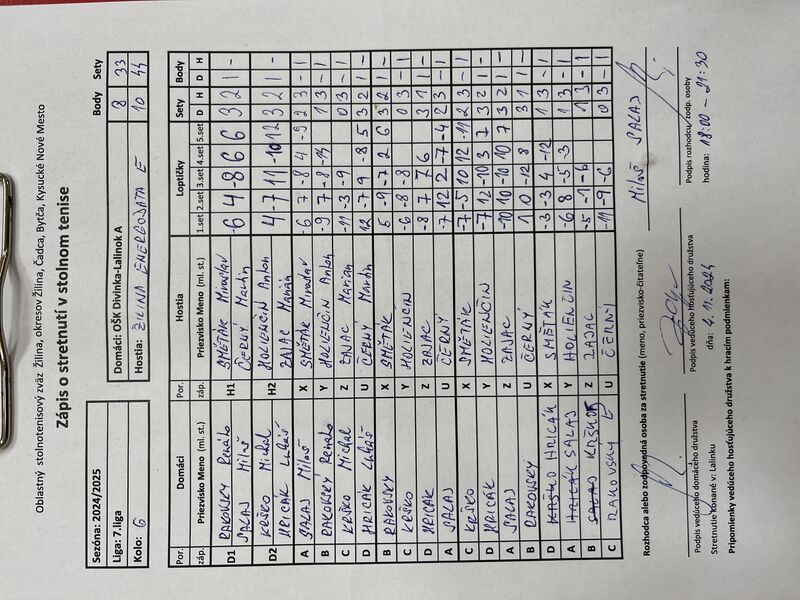 Oblastný stolnotenisový zväz Žilina, okresov Žilina, Čadca, Bytča, Kysucké Nové Mesto
Zápis o stretnutí v stolnom tenise
Sezóna: 2024/2025
Liga: 7.liga
Kolo: 6
Body Sety
Domáci: OŠK Divinka-Lalinok A 8 33
Hostia: ŽILINA ENERGODATA E 10 44
Por. Domáci Por. Hostia Loptičky Sety Body
záp. Priezvisko Meno (ml. st.) záp. Priezvisko Meno (ml. st.) 1.set 2.set 3.set 4.set 5.set D H D H
D1 RAKOVSKÝ Renáto H1 SMĚTÁK Miroslav -6 4 -8 6 6 3 2 1 -
SALAJ Miloš ČERNÝ Martin
D2 KRŠKO Michal H2 HOLIENČIN Anton 4 -7 11 -10 12 3 2 1 -
HRICÁK Lukáš ZAJAC Marián
A SALAJ Miloš X SMĚTÁK Miroslav -6 7 -8 4 -9 2 3 - 1
B RAKOVSKÝ Renáto Y HOLIENČIN Anton -9 7 -8 1 3 - 1
C KRŠKO Michal Z ZAJAC Marian -11 -3 -9 0 3 - 1
D HRICÁK Lukáš U ČERNÝ Martin 12 -7 9 -8 5 3 2 1 -
B RAKOVSKÝ X SMĚTÁK -9 -7 2 6 3 2 1 -
C KRŠKO Y HOLIENČIN -6 -8 -8 0 3 - 1
D HRICÁK Z ZAJAC -8 7 7 6 3 1 1 -
A SALAJ U ČERNÝ -7 12 2 -7 -4 2 3 - 1
C KRŠKO X SMĚTÁK -7 -5 10 12 -11 2 3 - 1
D HRICÁK Y HOLIENČIN -7 12 -10 3 7 3 2 1 -
A SALAJ Z ZAJAC -10 10 -10 10 7 3 2 1 -
B RAKOVSKÝ U ČERNÝ 1 10 -12 8 3 1 1 -
D HRICÁK X SMĚTÁK -3 -3 4 -12 1 3 - 1
A SALAJ Y HOLIENČIN -6 8 -5 -3 1 3 - 1
B KRŠKO Z ZAJAC -5 -1 -6 - 1
C RAKOVSKÝ U ČERNÍ -11 -9 -6 0 3 - 1
Rozhodca alebo zodpovedná osoba za stretnutie (meno, priezvisko-čitateľne) MILOŠ SALAJ
Podpis vedúceho domáceho družstva Podpis vedúceho hosťujúceho družstva Podpis rozhodcu, zodp. osoby
Stretnutie konané v: Lalinku dňa: 4.11.2024 hodina: 18:00 - 21:30
Pripomienky vedúceho hosťujúceho družstva k hracím podmienkam: